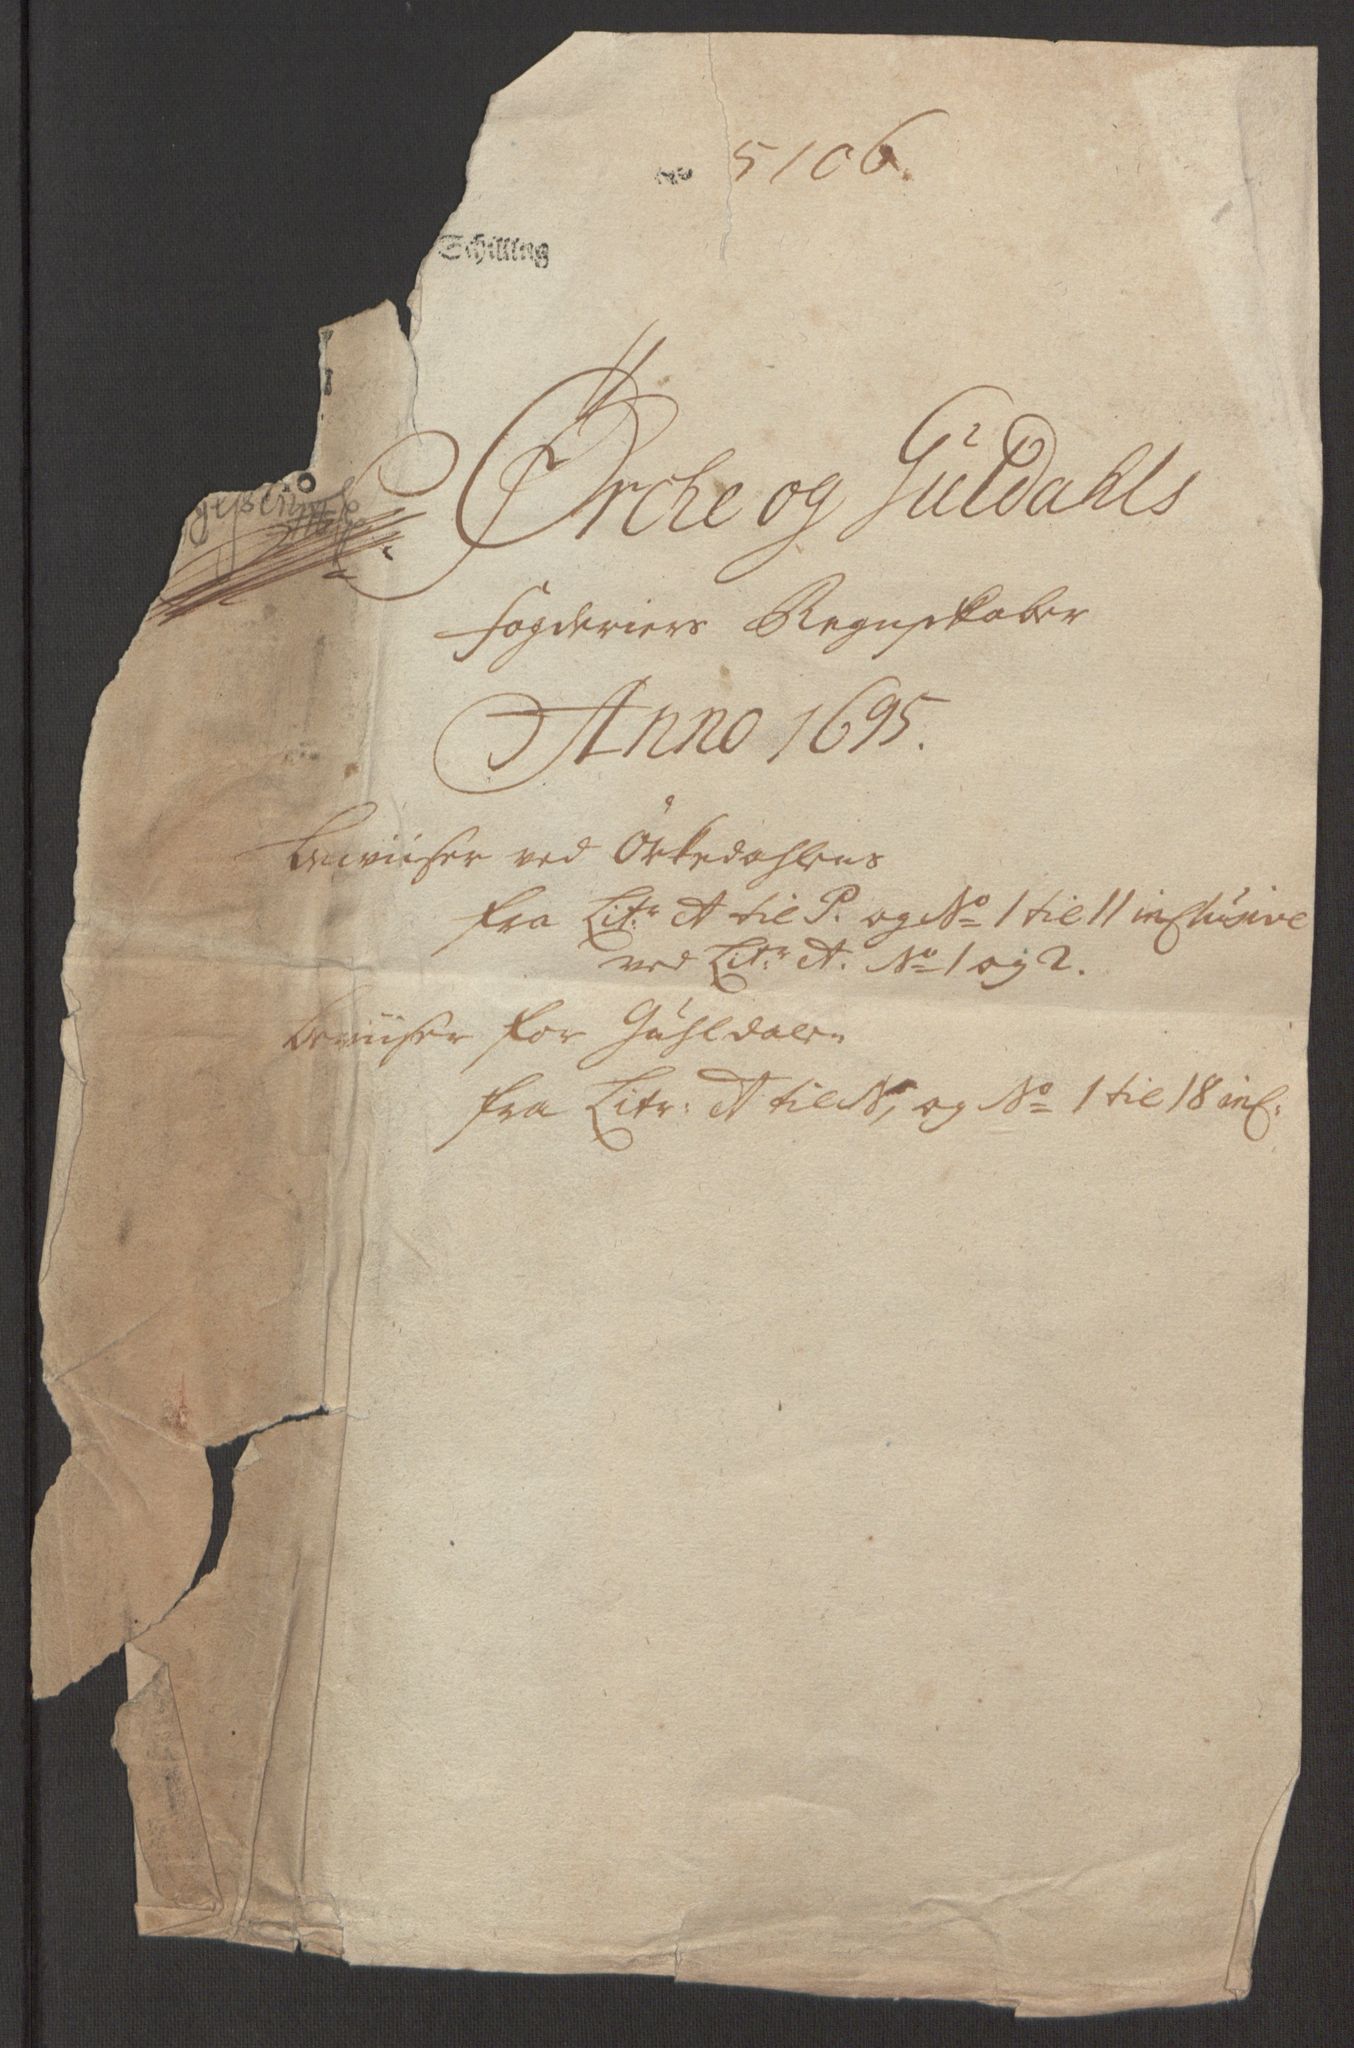 5106.
Schilling
Ørche og Güldahls
fogderiers Regnskaber
Anno 1695.
Beviiser ved Örkedahlens
fra Litr A til P. og No 1 til 11 inclusive
ved Litr: A. No 1 og 2.
Beviiser for Guhldalen
fra Litr: A til N, og No 1 til 18 incl: